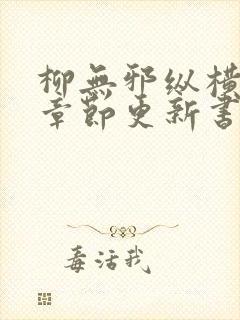 柳無邪纵橫
章節更新書
毒活我